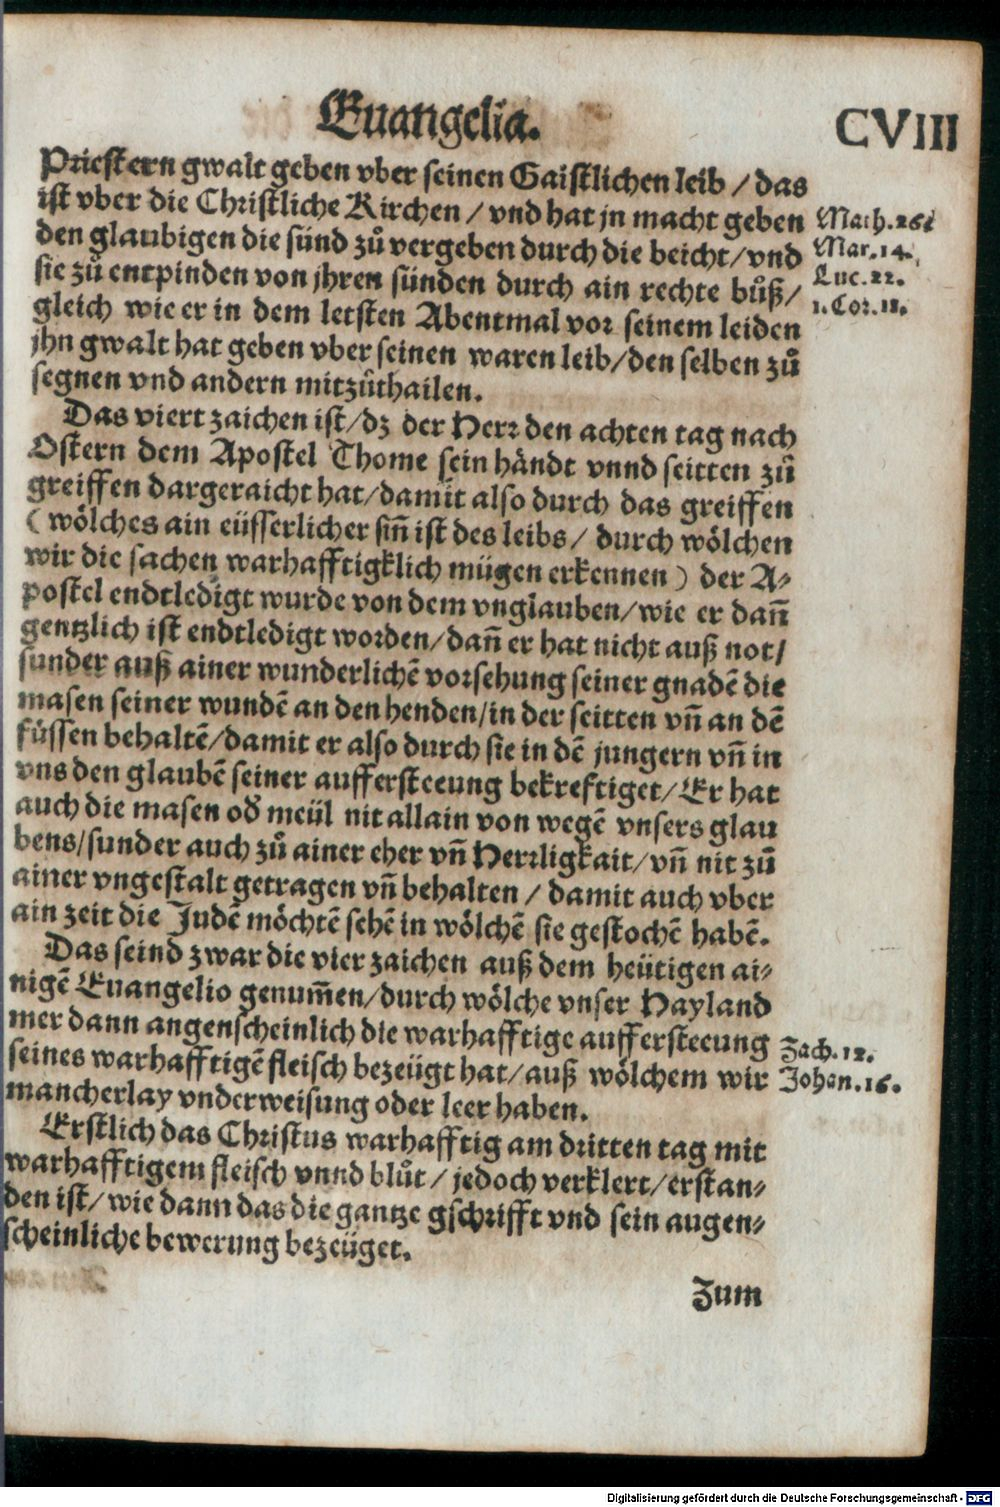 Euangelia.
CVIII
Priestern gwalt geben vber seinen Gaistlichen leib / das
ist vber die Christliche Kirchen / vnd hat jn macht geben
den glaubigen die sünd zů vergeben durch die beicht / vnd
sie zů entpinden von jhren sünden durch ain rechte bůß /
gleich wie er in dem letsten Abentmal vor seinem leiden
jhn gwalt hat geben vber seinen waren leib / den selben zů
segnen vnd andern mitzůthailen.
Math. 26.
Mar. 14.
Luc. 22.
1. Cor. 11.
Das viert zaichen ist / dz der Herr den achten tag nach
Ostern dem Apostel Thome sein händt vnnd seitten zů
greiffen dargeraicht hat / damit also durch das greiffen
( wölches ain eüsserlicher siñ ist des leibs / durch wölchen
wir die sachen warhafftigklich mügen erkennen ) der A-
postel endtledigt wurde von dem vnglauben / wie er dañ
gentzlich ist endtledigt worden / dañ er hat nicht auß not /
sunder auß ainer wunderlichẽ vorsehung seiner gnadẽ die
masen seiner wundẽ an den henden / in der seitten vñ an dẽ
füssen behaltẽ / damit er also durch sie in dẽ jungern vñ in
vns den glaubẽ seiner aufferstceung bekreftiget / Er hat
auch die masen oď meül nit allain von wegẽ vnsers glau
bens / sunder auch zů ainer eher vñ Herrligkait / vñ nit zů
ainer vngestalt getragen vñ behalten / damit auch vber
ain zeit die Judẽ möchtẽ sehẽ in wölchẽ sie gestochẽ habẽ.
Das seind zwar die vier zaichen auß dem heütigen ai-
nigẽ Euangelio genum̃en / durch wölche vnser Hayland
mer dann angenscheinlich die warhafftige auffersteeung
seines warhafftigẽ fleisch bezeügt hat / auß wölchem wir
mancherlay vnderweisung oder leer haben.
Zach. 12.
Johan. 16.
Erstlich das Christus warhafftig am dritten tag mit
warhafftigem fleisch vnnd blůt / jedoch verklert / erstan-
den ist / wie dann das die gantze gschrifft vnd sein augen-
scheinliche bewerung bezeüget.
Zum
Digitalisierung gefördert durch die Deutsche Forschungsgemeinschaft - DFG